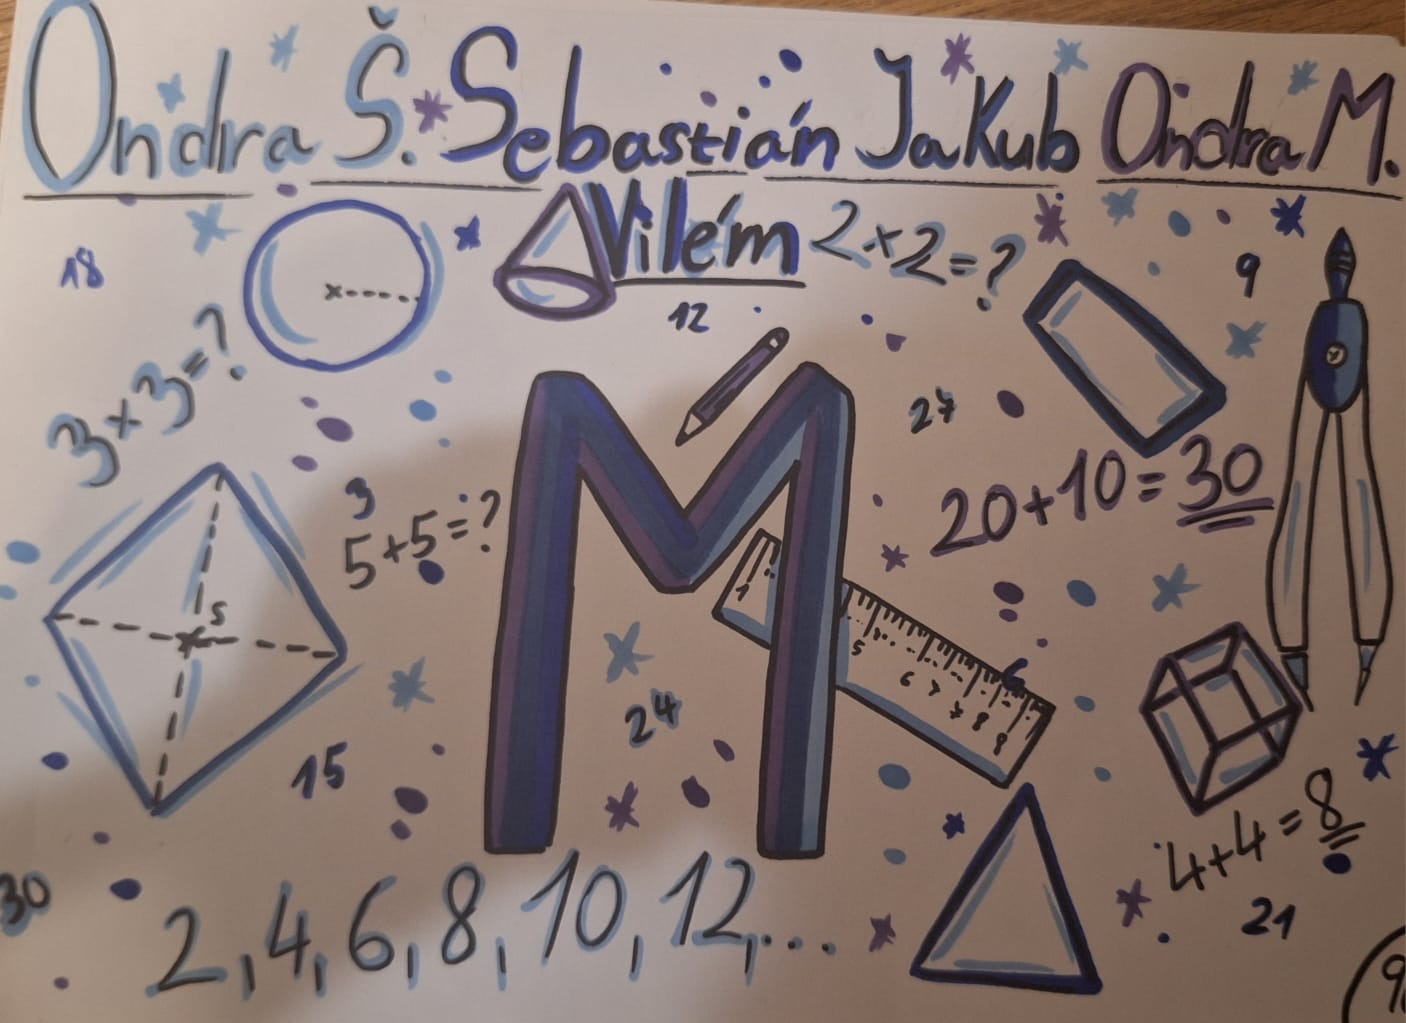 Ondra Š. Sebastián Jakub Ondra M.
Vilém
2×2=?
18
9
12
3×3=?
27
3
5+5=?
20+10=30
S
1
5
6
7
7
8
9
6
24
15
4+4=8
30
21
2,4,6,8,10,12,...
M